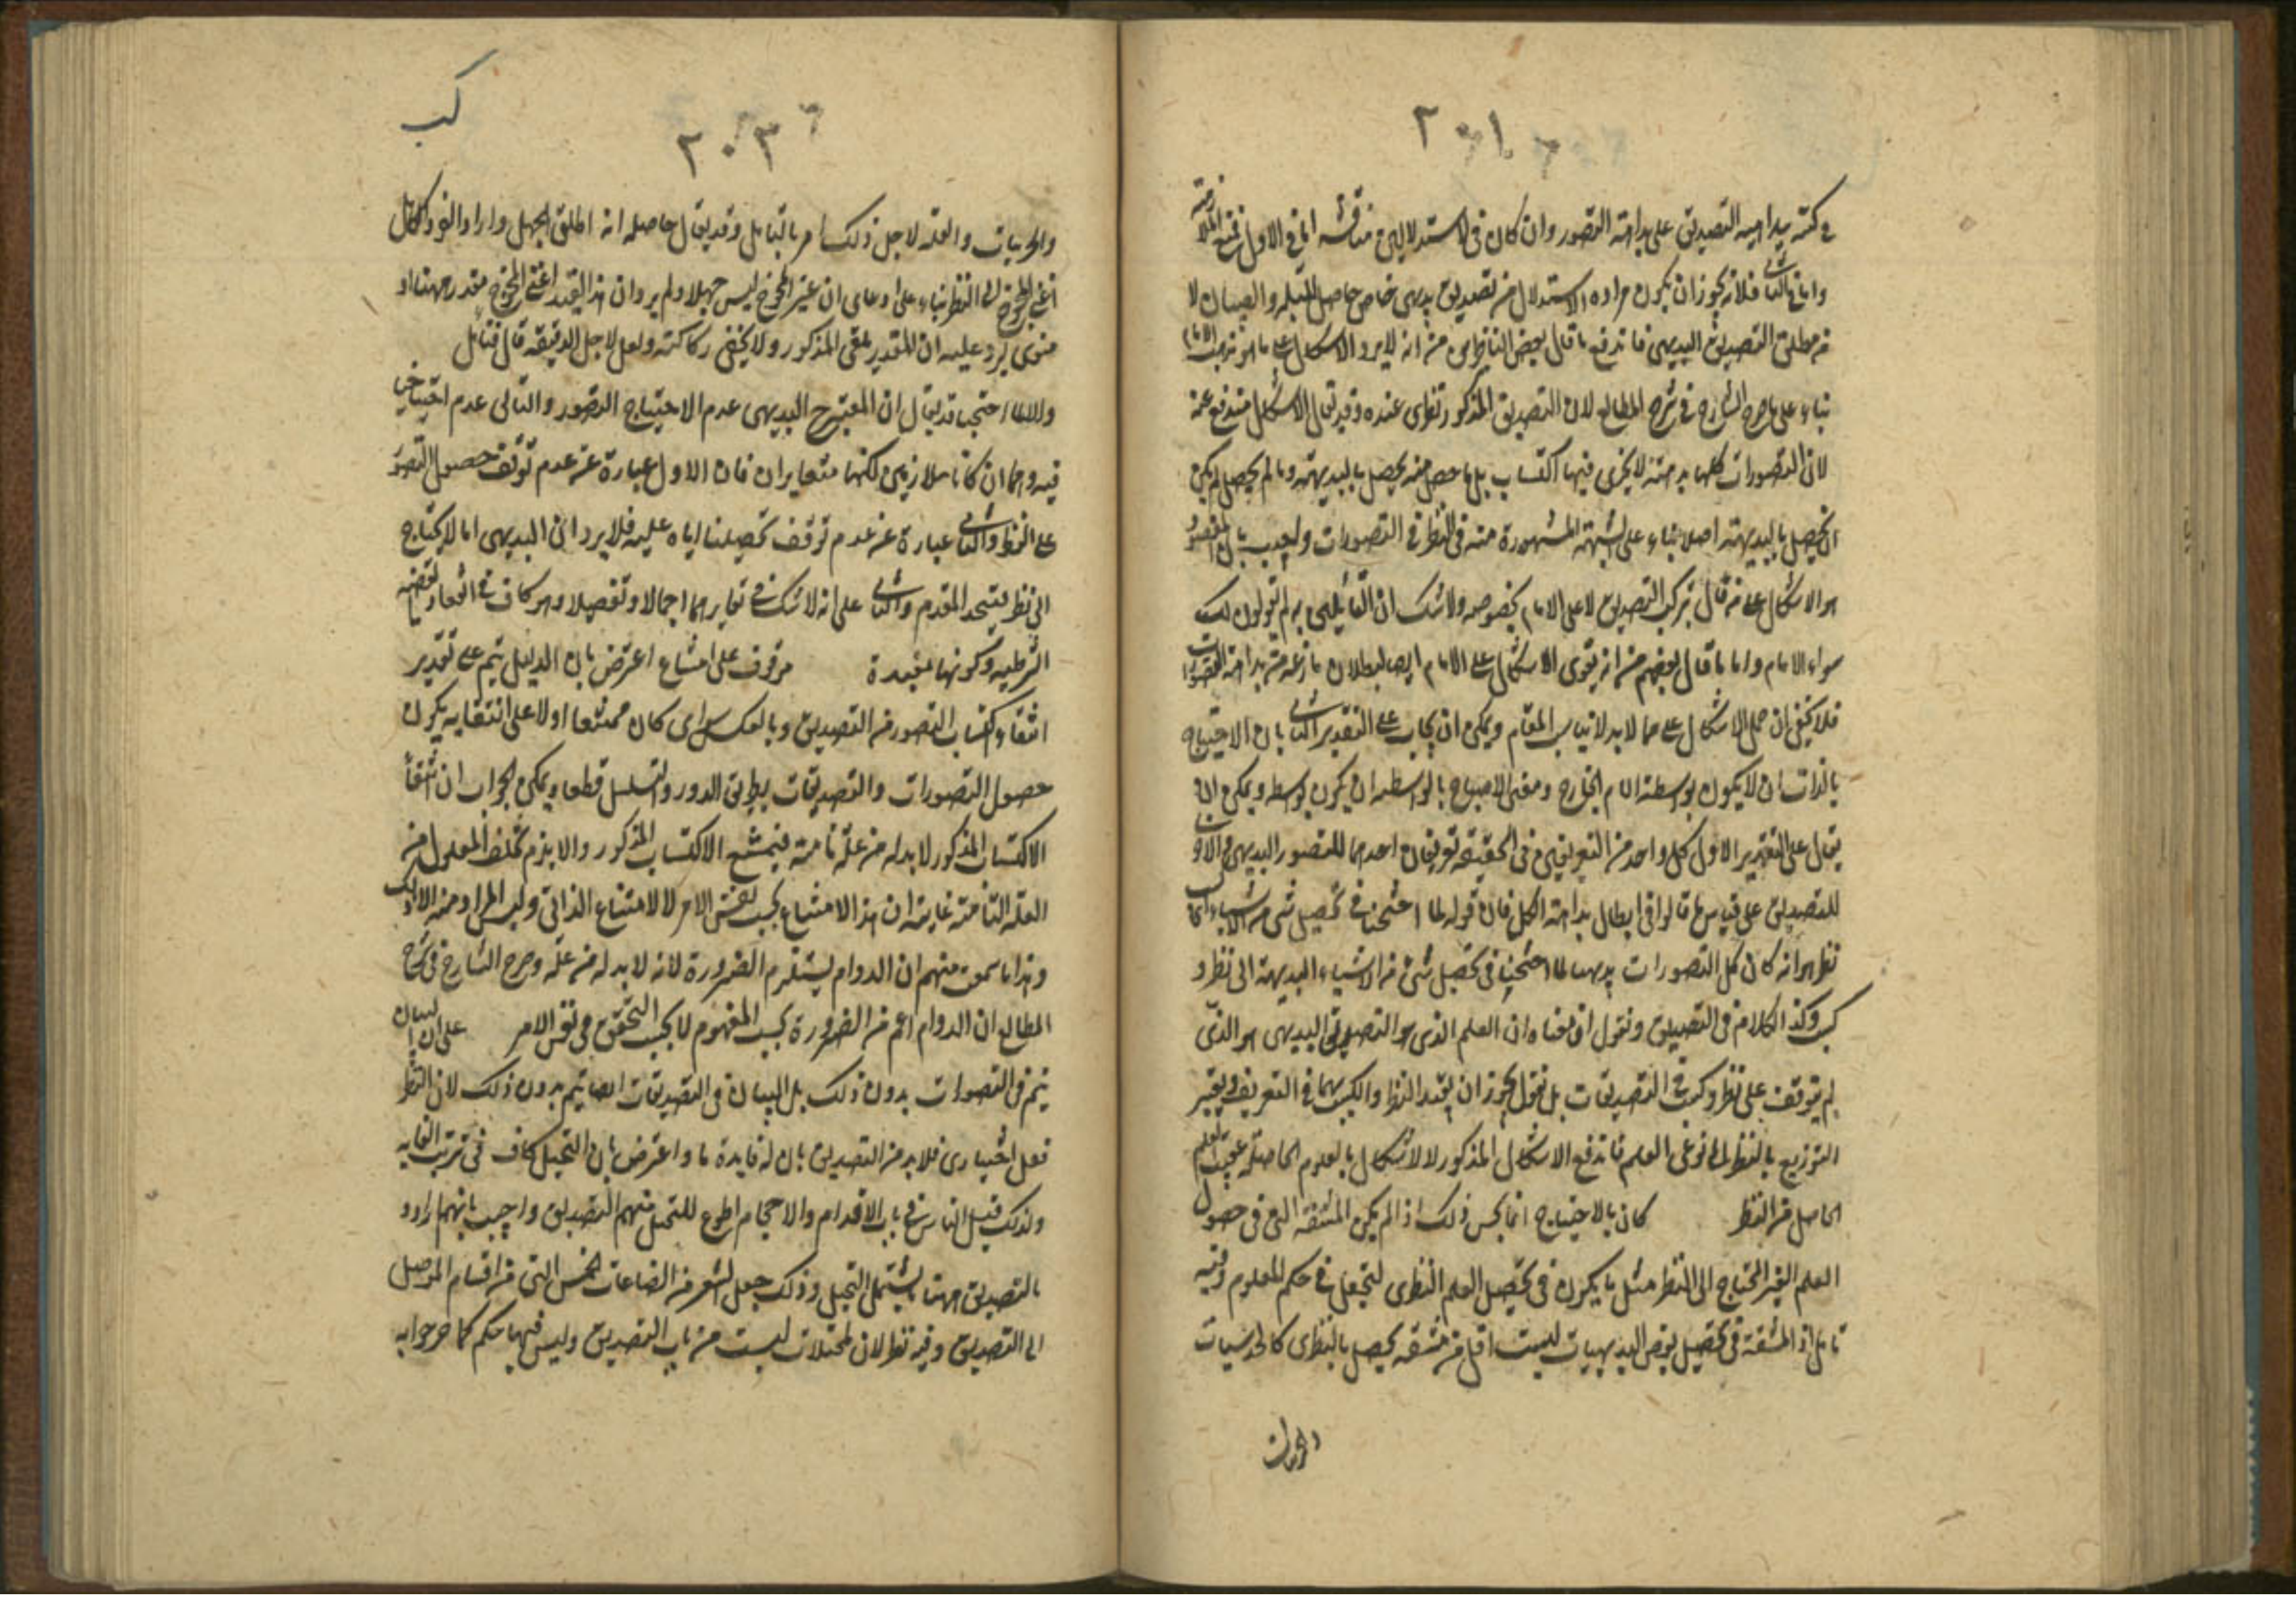 ٢٠١
في كتبه ببداهة التصديق على بداهة التصور وان كان في الاستدلالين مناقشة اما في الاول فلمنع الملازمة
واما في الثاني فلانه يجوز ان يكون مراده الاستدلال من تصديق بديهي خاص حاصل للبله والصبيان لا
من مطلق التصديق البديهي فاندفع ما قال بعض الناظرين من انه لا يرد الاشكال على ما هو مذهب الامام
بناء على ما صرح الشارح في شرح المطالع لان التصديق المذكور نظري عنده وقد يقال الاشكال مندفع عنه
لان التصورات كلها بديهية لا يجري فيها اكتساب بل ما حصل منه يحصل بالبديهة وما لم يحصل لم يكن
ان يحصل بالبديهة اصلا بناء على الشبهة المشهورة منه في النظر في التصورات واجيب بان المقصود
هو الاشكال على من قال بتركب التصديق لا على الامام بخصوصه ولا شك ان القائلين به لم يقولون
سواء الامام واما ما قال بعضهم من انه يقوى الاشكال على الامام ايضا لبطلان ما زعمه من بداهة التصورات
فلا يخفى ان حمل الاشكال على هذا لا يناسب المقام ويمكن ان يجاب على التقدير الثاني بان الاحتياج
بالذات ان لا يكون بواسطة الام الخارج ومعنى الاحتياج بالواسطة ان يكون بواسطة ويمكن ان
يقال على التقدير الاول كل واحد من التعريفين في الحقيقة تعريفان احدهما للتصور البديهي والاخر
للتصديق على قياس ما قالوا في ابطال بداهة الكل فان قوله لما احتجنا في تحصيل شي من الاشياء الى
نظر هو انه كان كل التصورات بديهيا لما احتجنا في تحصيل شي من الاشياء البديهة الى نظر و
كسب وكذا الكلام في التصديق ونقول ان معناه ان العلم الذي هو التصديق البديهي هو الذي
لم يتوقف على نظر وكسب في التصديقات بل نقول يجوز ان يقيد النظر والكسب بهما في التعريف ويعتبر
التوزيع بالنظر الى نوعي العلم فاندفع الاشكال المذكور لا الاشكال بالعلوم الحاصلة عقيب العلم
الحاصل من النظر كان بالاحتياج انما يحسن ذلك اذا لم يكن المشقة التي في حصول
العلم الغير المحتاج الى النظر مثل ما يكون في تحصيل العلم النظري لتجعل في حكم المعلوم وفيه
تامل اذ المشقة في تحصيل بعض البديهيات ليست اقل من مشقة تحصيل بالنظري كالحدسيات
كب
٢٠٣
والتجربيات والعلة لاجل ذلك امر بالتامل وقد يقال حاصله انه اطلق الجهل واراد الفرد الكامل
اعني المحوج الى النظر بناء على ادعاء ان غير المحوج ليس جهلا ولم يرد ان هذا القيد اعني المحوج مقدر ههنا او
منوي ليرد عليه ان المقدر يلغي المذكور ولا يخفى ركاكته ولعل لاجل الدقيقة قال فتامل
والا لما احتجنا قد يقال ان المعتبر في البديهي عدم الاحتياج التصور والتالي عدم احتياجنا
فيه وهما ان كانا متلازمين لكنهما متغايران فان الاول عبارة عن عدم توقف حصول التصور
على النظر والثاني عبارة عن عدم توقف تحصيلنا اياه عليه فلا يرد ان البديهي اما لا يحتاج
الى نظر فيتحد المقدم والثاني على انه لا شك في تغايرهما اجمالا وتفصيلا وهو كاف في انعقاد القضية
الشرطية وكونها مفيدة موقوف على امتناع اعترض بان الدليل يتم على تقدير
انتفاء اكتساب التصور من التصديق وبالعكس سواء كان ممتنعا اولا على انتفائه يكون
حصول التصورات والتصديقات بطريق الدور والتسلسل قطعا ويمكن الجواب ان انتفاء
الاكتساب المذكور لا بد له من علة تامة فيمتنع الاكتساب المذكور والا يلزم تخلف المعلول من
العلة التامة غايته ان هذا الامتناع بحسب نفس الامر لا الامتناع الذاتي وليس المراد منه الا ذلك
وهذا ما سمعت منهم ان الدوام يستلزم الضرورة لانه لا بد له من علة وصرح الشارح في شرح
المطالع ان الدوام اعم من الضرورة بحسب المفهوم لا بحسب التحقق في نفس الامر على ان البيان
يتم في التصورات بدون ذلك بل البيان في التصديقات ايضا يتم بدون ذلك لان النظر
فعل اختياري فلا بد من التصديق بان له فايدة ما واعترض بان التخيل كاف في ترتب الغاية
ولذلك قيل الناس في باب الاقدام والاحجام اطوع للتخيل منهم للتصديق واجيب بانهم ارادوا
بالتصديق ههنا ما يشتمل التخيل وذلك جعل الشعر من الصناعات الخمس التي من اقسام الموصل
الى التصديق وفيه نظر لان المخيلات ليست من باب التصديق وليس فيها حكم كما صرحوا به